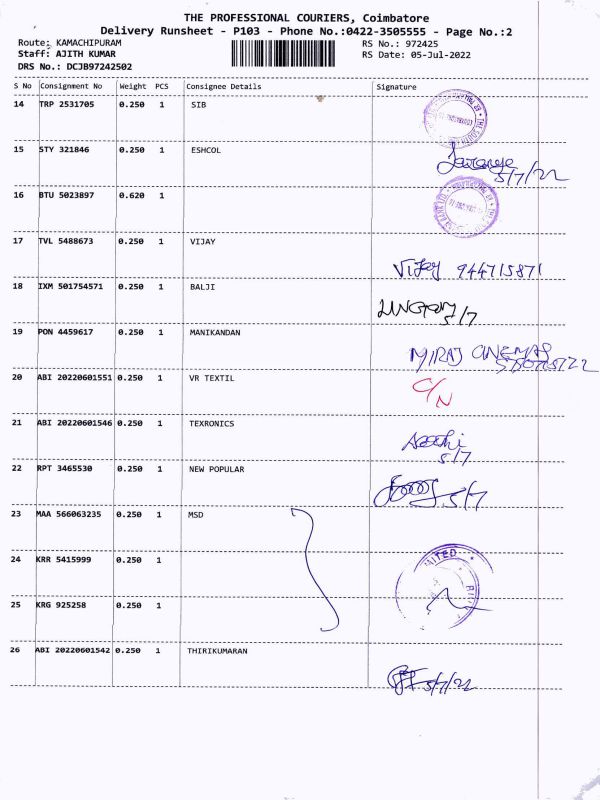 THE PROFESSIONAL COURIERS, Coimbatore
Delivery Runsheet - P103 - Phone No.:0422-3505555 - Page No.:2
Route: KAMACHIPURAM RS No.: 972425
Staff: AJITH KUMAR RS Date: 05-Jul-2022
DRS No.: DCJB97242502
S No Consignment No Weight PCS Consignee Details Signature
14 TRP 2531705 0.250 1 SIB
15 STY 321846 0.250 1 ESHCOL
5/7/22
16 BTU 5023897 0.620 1
17 TVL 5488673 0.250 1 VIJAY
Vijay 944715871
18 IXM 501754571 0.250 1 BALJI
5/7
19 PON 4459617 0.250 1 MANIKANDAN
MIRAJ CINEMAS
20 ABI 20220601551 0.250 1 VR TEXTIL
C/N
21 ABI 20220601546 0.250 1 TEXRONICS
5/7
22 RPT 3465530 0.250 1 NEW POPULAR
5/7
23 MAA 566063235 0.250 1 MSD
24 KRR 5415999 0.250 1
25 KRG 925258 0.250 1
26 ABI 20220601542 0.250 1 THIRIKUMARAN
5/7/22